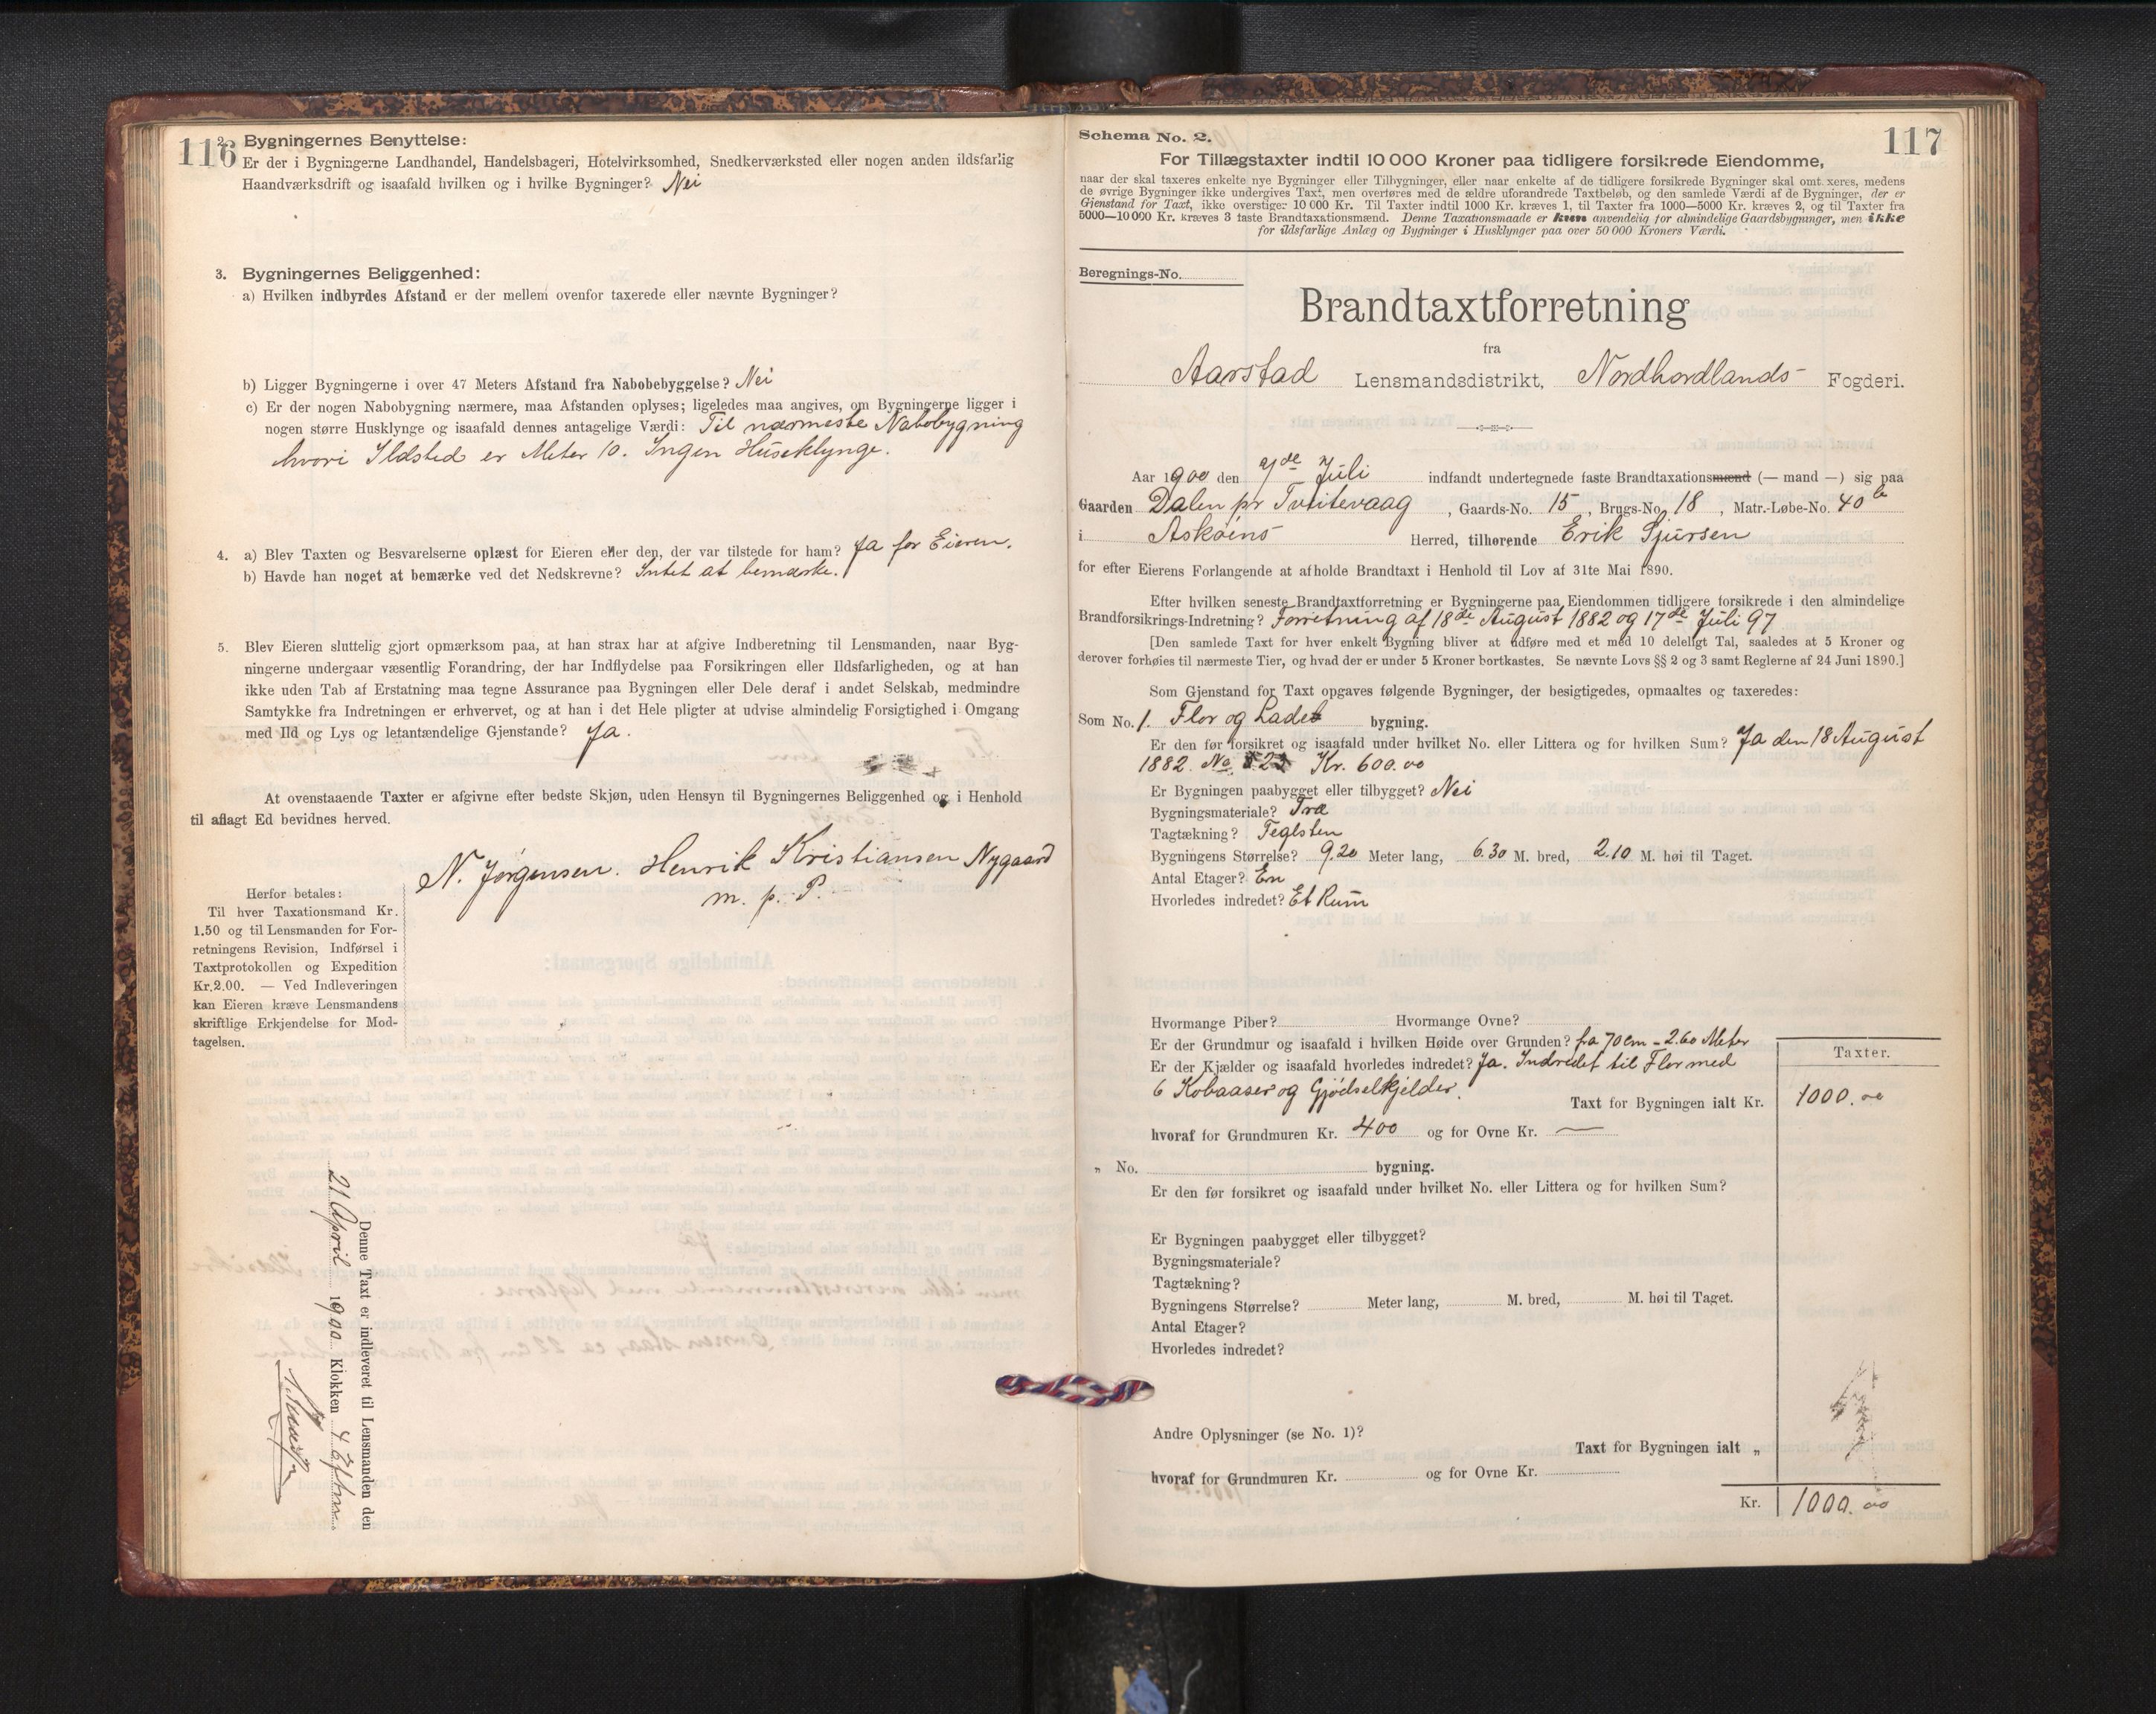 116
2. Bygningernes Benyttelse:
Er der i Bygningerne Landhandel, Handelsbageri, Hotelvirksomhed, Snedkerværksted eller nogen anden ildsfarlig
Haandværksdrift og isaafald hvilken og i hvilke Bygninger? Nei
3. Bygningernes Beliggenhed:
a) Hvilken indbyrdes Afstand er der mellem ovenfor taxerede eller nævnte Bygninger?
b) Ligger Bygningerne i over 47 Meters Afstand fra Nabobebyggelse? Nei
c) Er der nogen Nabobygning nærmere, maa Afstanden oplyses; ligeledes maa angives, om Bygningerne ligger i
nogen større Husklynge og isaafald dennes antagelige Værdi: Til nærmeste Nabobygning
hvori Ildsted er Meter 10. Ingen Huseklynge.
4. a) Blev Taxten og Besvarelserne oplæst for Eieren eller den, der var tilstede for ham? Ja for Eieren.
b) Havde han noget at bemærke ved det Nedskrevne? Intet at bemærke.
5. Blev Eieren sluttelig gjort opmærksom paa, at han strax har at afgive Indberetning til Lensmanden, naar Byg-
ningerne undergaar væsentlig Forandring, der har Indflydelse paa Forsikringen eller Ildsfarligheden, og at han
ikke uden Tab af Erstatning maa tegne Assurance paa Bygningen eller Dele deraf i andet Selskab, medmindre
Samtykke fra Indretningen er erhvervet, og at han i det Hele pligter at udvise almindelig Forsigtighed i Omgang
med Ild og Lys og letantændelige Gjenstande? Ja.
At ovenstaaende Taxter er afgivne efter bedste Skjøn, uden Hensyn til Bygningernes Beliggenhed og i Henhold
til aflagt Ed bevidnes herved.
N. Jørgensen. Henrik Kristiansen Nygaard
m. p. P.
Herfor betales:
Til hver Taxationsmand Kr.
1.50 og til Lensmanden for For-
retningens Revision, Indførsel i
Taxtprotokollen og Expedition
Kr. 2.00. — Ved Indleveringen
kan Eieren kræve Lensmandens
skriftlige Erkjendelse for Mod-
tagelsen.
Denne Taxt er indleveret til Lensmanden den
21 April 1900 Klokken 4 Eftm.
117
Schema No. 2.
For Tillægstaxter indtil 10 000 Kroner paa tidligere forsikrede Eiendomme,
naar der skal taxeres enkelte nye Bygninger eller Tilbygninger, eller naar enkelte af de tidligere forsikrede Bygninger skal omtaxeres, medens
de øvrige Bygninger ikke undergives Taxt, men overføres med de ældre uforandrede Taxtbeløb, og den samlede Værdi af de Bygninger, der er
Gjenstand for Taxt, ikke overstiger 10 000 Kr. Til Taxter indtil 1000 Kr. kræves 1, til Taxter fra 1000—5000 Kr. kræves 2, og til Taxter fra
5000—10 000 Kr. kræves 3 faste Brandtaxationsmænd. Denne Taxationsmaade er kun anvendelig for almindelige Gaardsbygninger, men ikke
for ildsfarlige Anlæg og Bygninger i Husklynger paa over 50 000 Kroners Værdi.
Beregnings-No.
Brandtaxtforretning
fra
Aarstad Lensmandsdistrikt, Nordhordlands Fogderi.
Aar 1900 den 7de Juli indfandt undertegnede faste Brandtaxationsmænd (— mand —) sig paa
Gaarden Dalen pr Tveitevaag, Gaards-No. 15, Brugs-No. 18, Matr.-Løbe-No. 40 b
i Askøens Herred, tilhørende Erik Sjursen
for efter Eierens Forlangende at afholde Brandtaxt i Henhold til Lov af 31te Mai 1890.
Efter hvilken seneste Brandtaxtforretning er Bygningerne paa Eiendommen tidligere forsikrede i den almindelige
Brandforsikrings-Indretning? Forretning af 18de August 1882 og 17de Juli 97
[Den samlede Taxt for hver enkelt Bygning bliver at udføre med et med 10 deleligt Tal, saaledes at 5 Kroner og
derover forhøies til nærmeste Tier, og hvad der er under 5 Kroner bortkastes. Se nævnte Lovs §§ 2 og 3 samt Reglerne af 24 Juni 1890.]
Som Gjenstand for Taxt opgaves følgende Bygninger, der besigtigedes, opmaaltes og taxeredes:
Som No. 1. Flor og Lade bygning.
Er den før forsikret og isaafald under hvilket No. eller Littera og for hvilken Sum? Ja den 18 August
1882. No. Kr. 600.00
Er Bygningen paabygget eller tilbygget? Nei
Bygningsmateriale? Træ
Tagtækning? Teglsten
Bygningens Størrelse? 9.20 Meter lang, 6.30 M. bred, 2.10 M. høi til Taget.
Antal Etager? En
Hvorledes indredet? Et Rum
Hvormange Piber? Hvormange Ovne?
Er der Grundmur og isaafald i hvilken Høide over Grunden? fra 70 cm - 2.60 Meter
Er der Kjælder og isaafald hvorledes indredet? Ja. Indredet til Flor med
6 Kobaaser og Gjødselkjelder.
Taxter.
Taxt for Bygningen ialt Kr. 1000.00
hvoraf for Grundmuren Kr. 400 og for Ovne Kr. —
„ No. bygning.
Er den før forsikret og isaafald under hvilket No. eller Littera og for hvilken Sum?
Er Bygningen paabygget eller tilbygget?
Bygningsmateriale?
Tagtækning?
Bygningens Størrelse? Meter lang, M. bred, M. høi til Taget.
Antal Etager?
Hvorledes indredet?
Andre Oplysninger (se No. 1)?
Taxt for Bygningen ialt „
hvoraf for Grundmuren Kr. og for Ovne Kr.
Kr. 1000.00